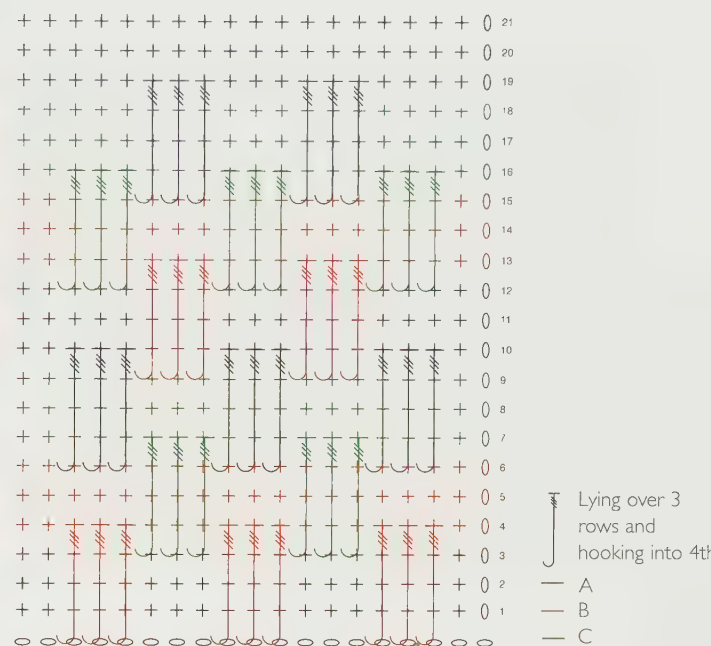 21
20
19
18
17
16
15
14
13
12
11
10
9
8
7
6
5
4
3
2
1
Lying over 3
rows and
hooking into 4th
A
B
C